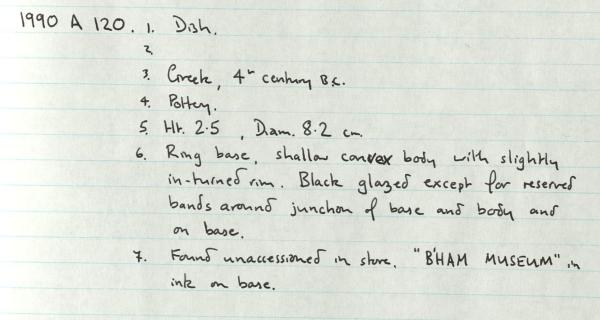 1990 A 120. 1. Dish.
2.
3. Greek, 4th century B.C.
4. Pottery.
5. Ht. 2.5 , Diam. 8.2 cm.
6. Ring base, shallow convex body with slightly
in-turned rim. Black glazed except for reserved
bands around junction of base and body and
on base.
7. Found unaccessioned in store. "B'HAM MUSEUM" in
ink on base.